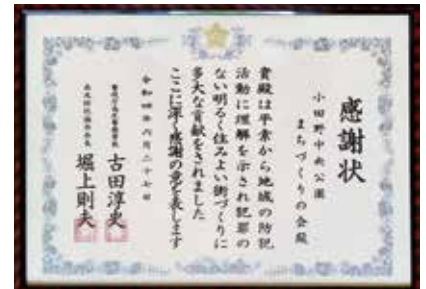 感謝状
小田野中央公園
まちづくりの会殿
貴殿は平素から地域の防犯
活動に理解を示され犯罪の
ない明るく住みよい街づくりに
多大な貢献をされました
ここに深く感謝の意を表します
令和四年六月二十七日
警視庁高尾警察署長 古田淳史
高尾防犯協会会長 堀上則夫